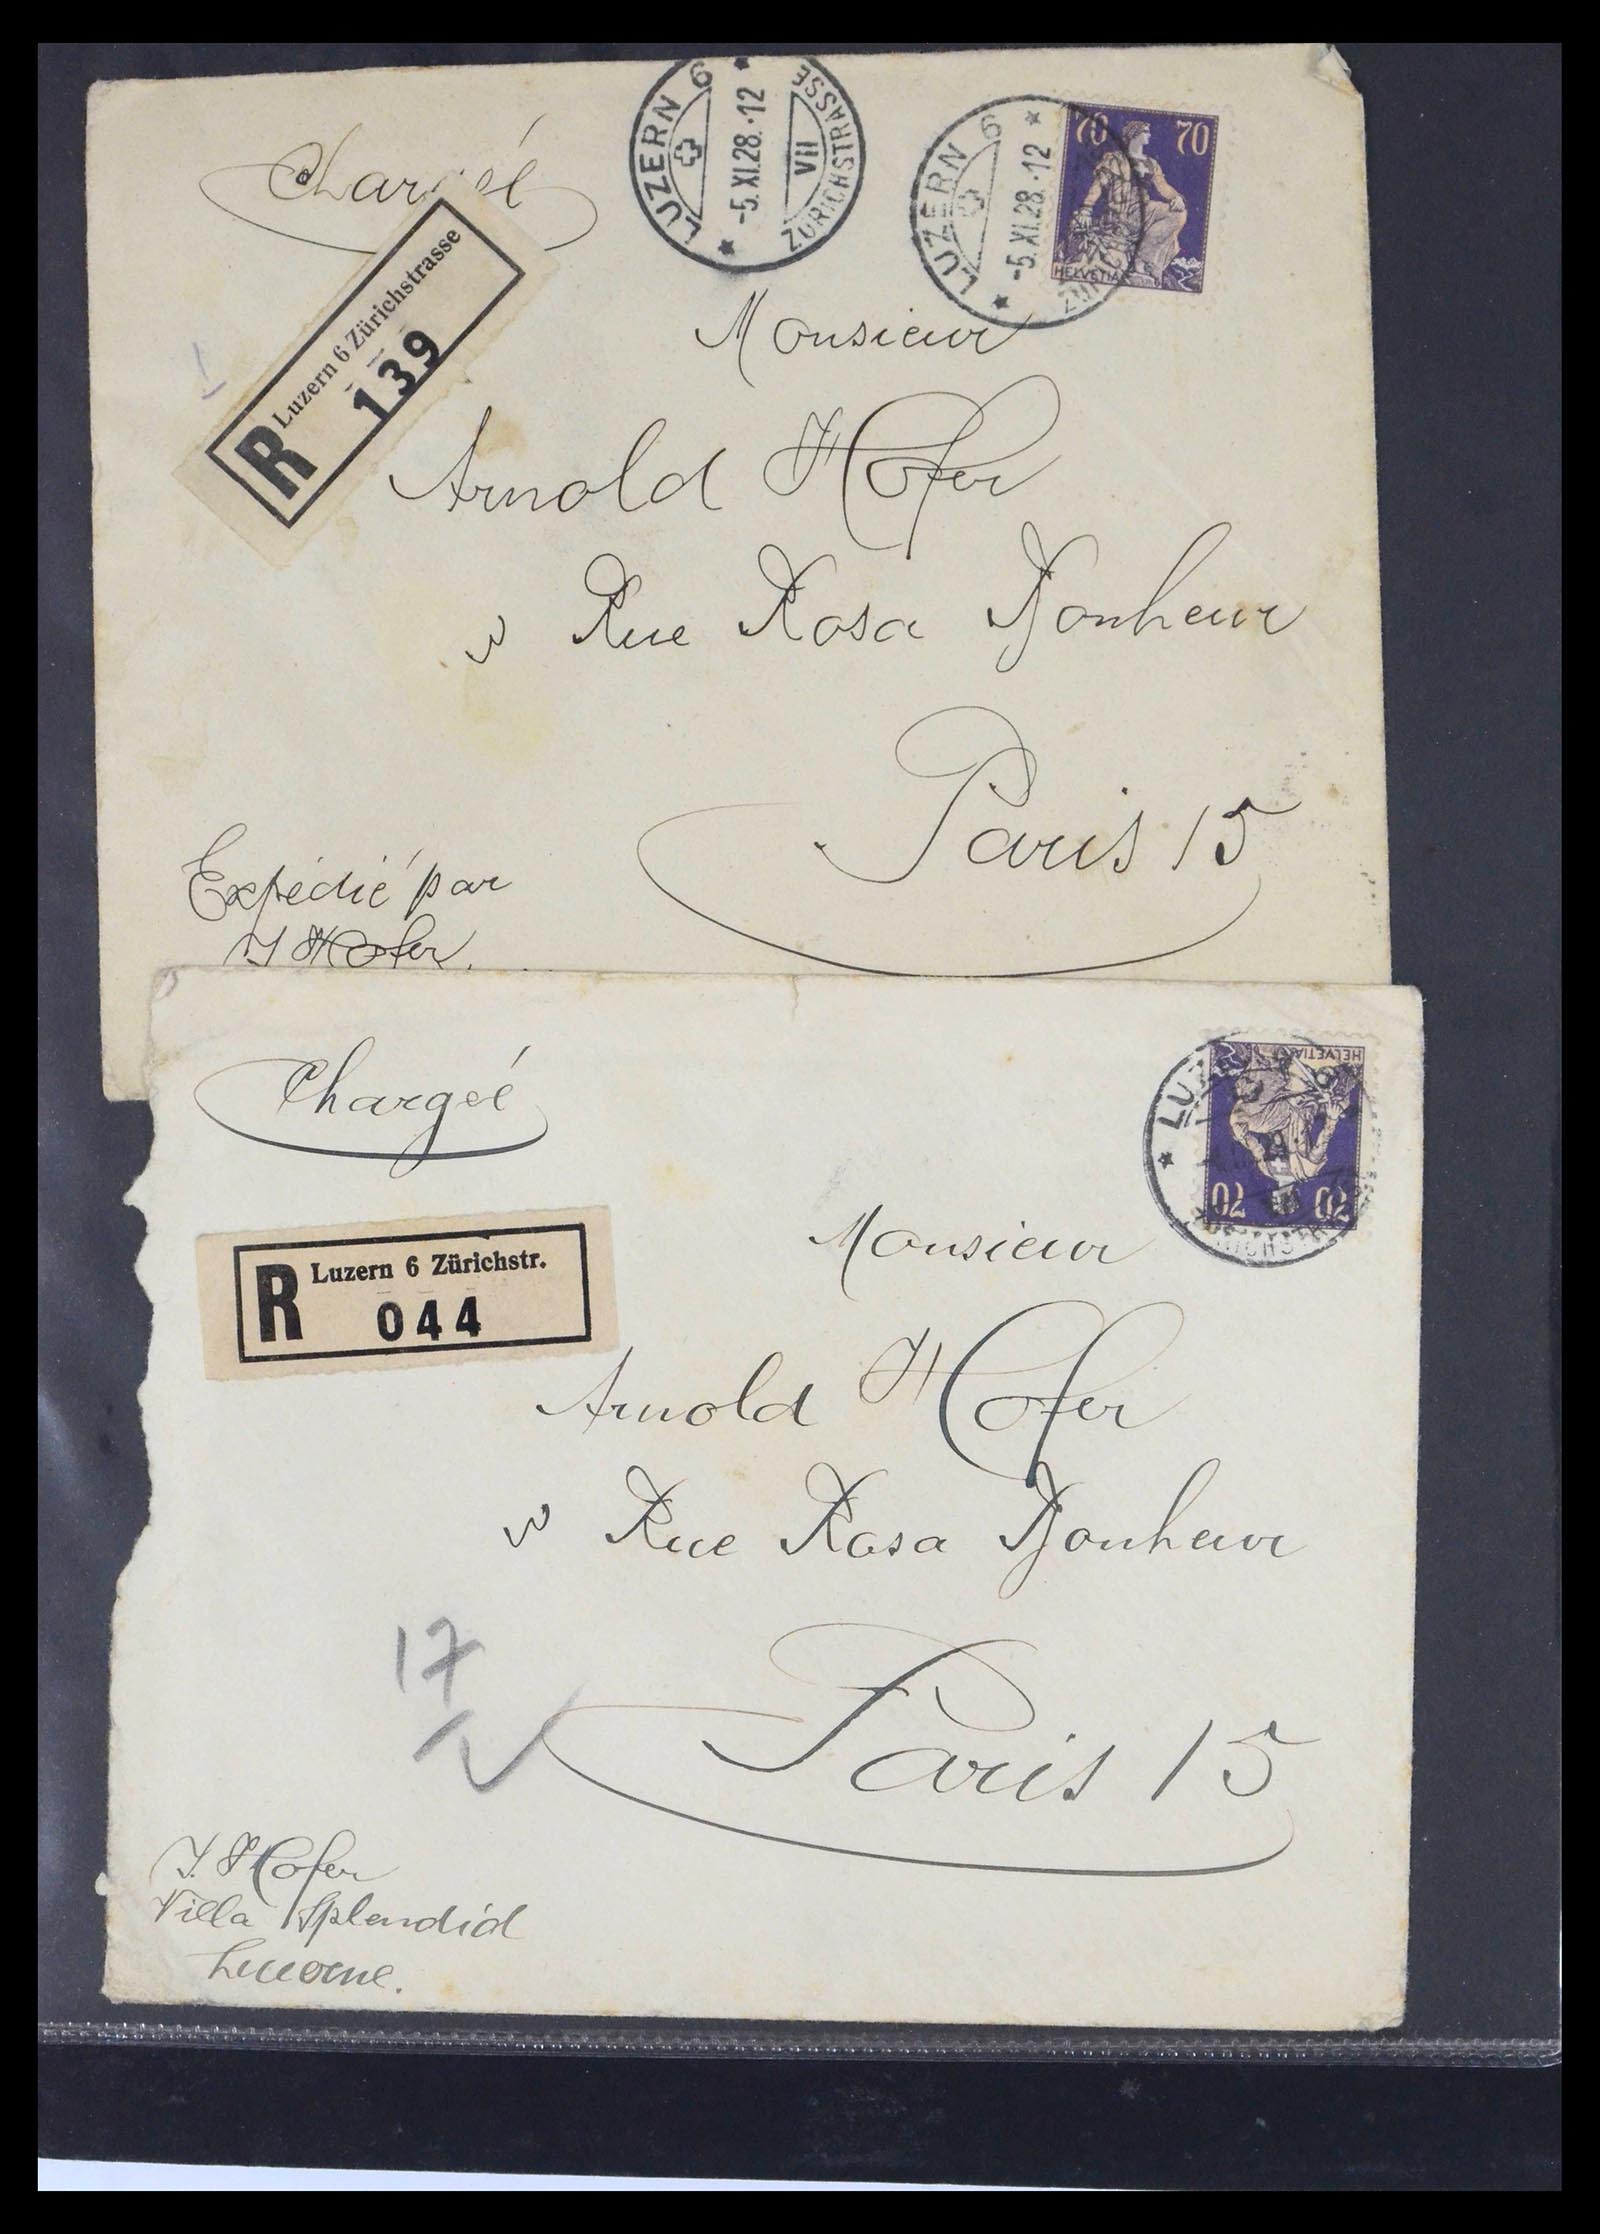 Chargeé
LUZERN 6
-5.XI.28.-12
VII
ZÜRICHSTRASSE
LUZERN 6
-5.XI.28.-12
70 70
HELVETIA
R Luzern 6 Zürichstrasse
139
Monsieur
Arnold Hofer
Rue Rosa Bonheur
Paris 15
Expédié par
J Hofer.
Chargeé
HELVETIA
70 70
R Luzern 6 Zürichstr.
044
Monsieur
Arnold Hofer
Rue Rosa Bonheur
17
Paris 15
J. Hofer
Villa Splendid
Lucerne.